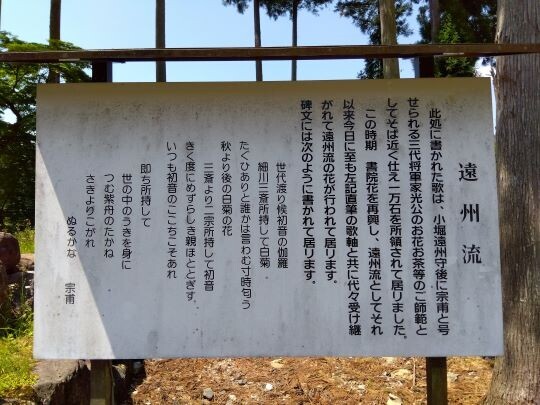 遠州流
此処に書かれた歌は、小堀遠州守後に宗甫と号
せられる三代将軍家光公のお花お茶等のご師範と
してそば近く仕え一万石を所領されて居りました。
この時期　書院花を再興し、遠州流としてそれ
以来今日に至も左記直筆の歌軸と共に代々受け継
がれて遠州流の花が行われて居ります。
碑文には次のように書かれて居ります。
世代渡り候初音の伽羅
細川三斎所持して白菊
たぐひありと誰かは言わむ寸時匂う
秋より後の白菊の花
三斎より二宗所持して初音
きく度にめずらしき親ほととぎす
いつも初音のここちこそあれ
即ち所持して
世の中のうきを身に
つむ紫舟のたかね
さきよりこがれ
ぬるかな　宗甫